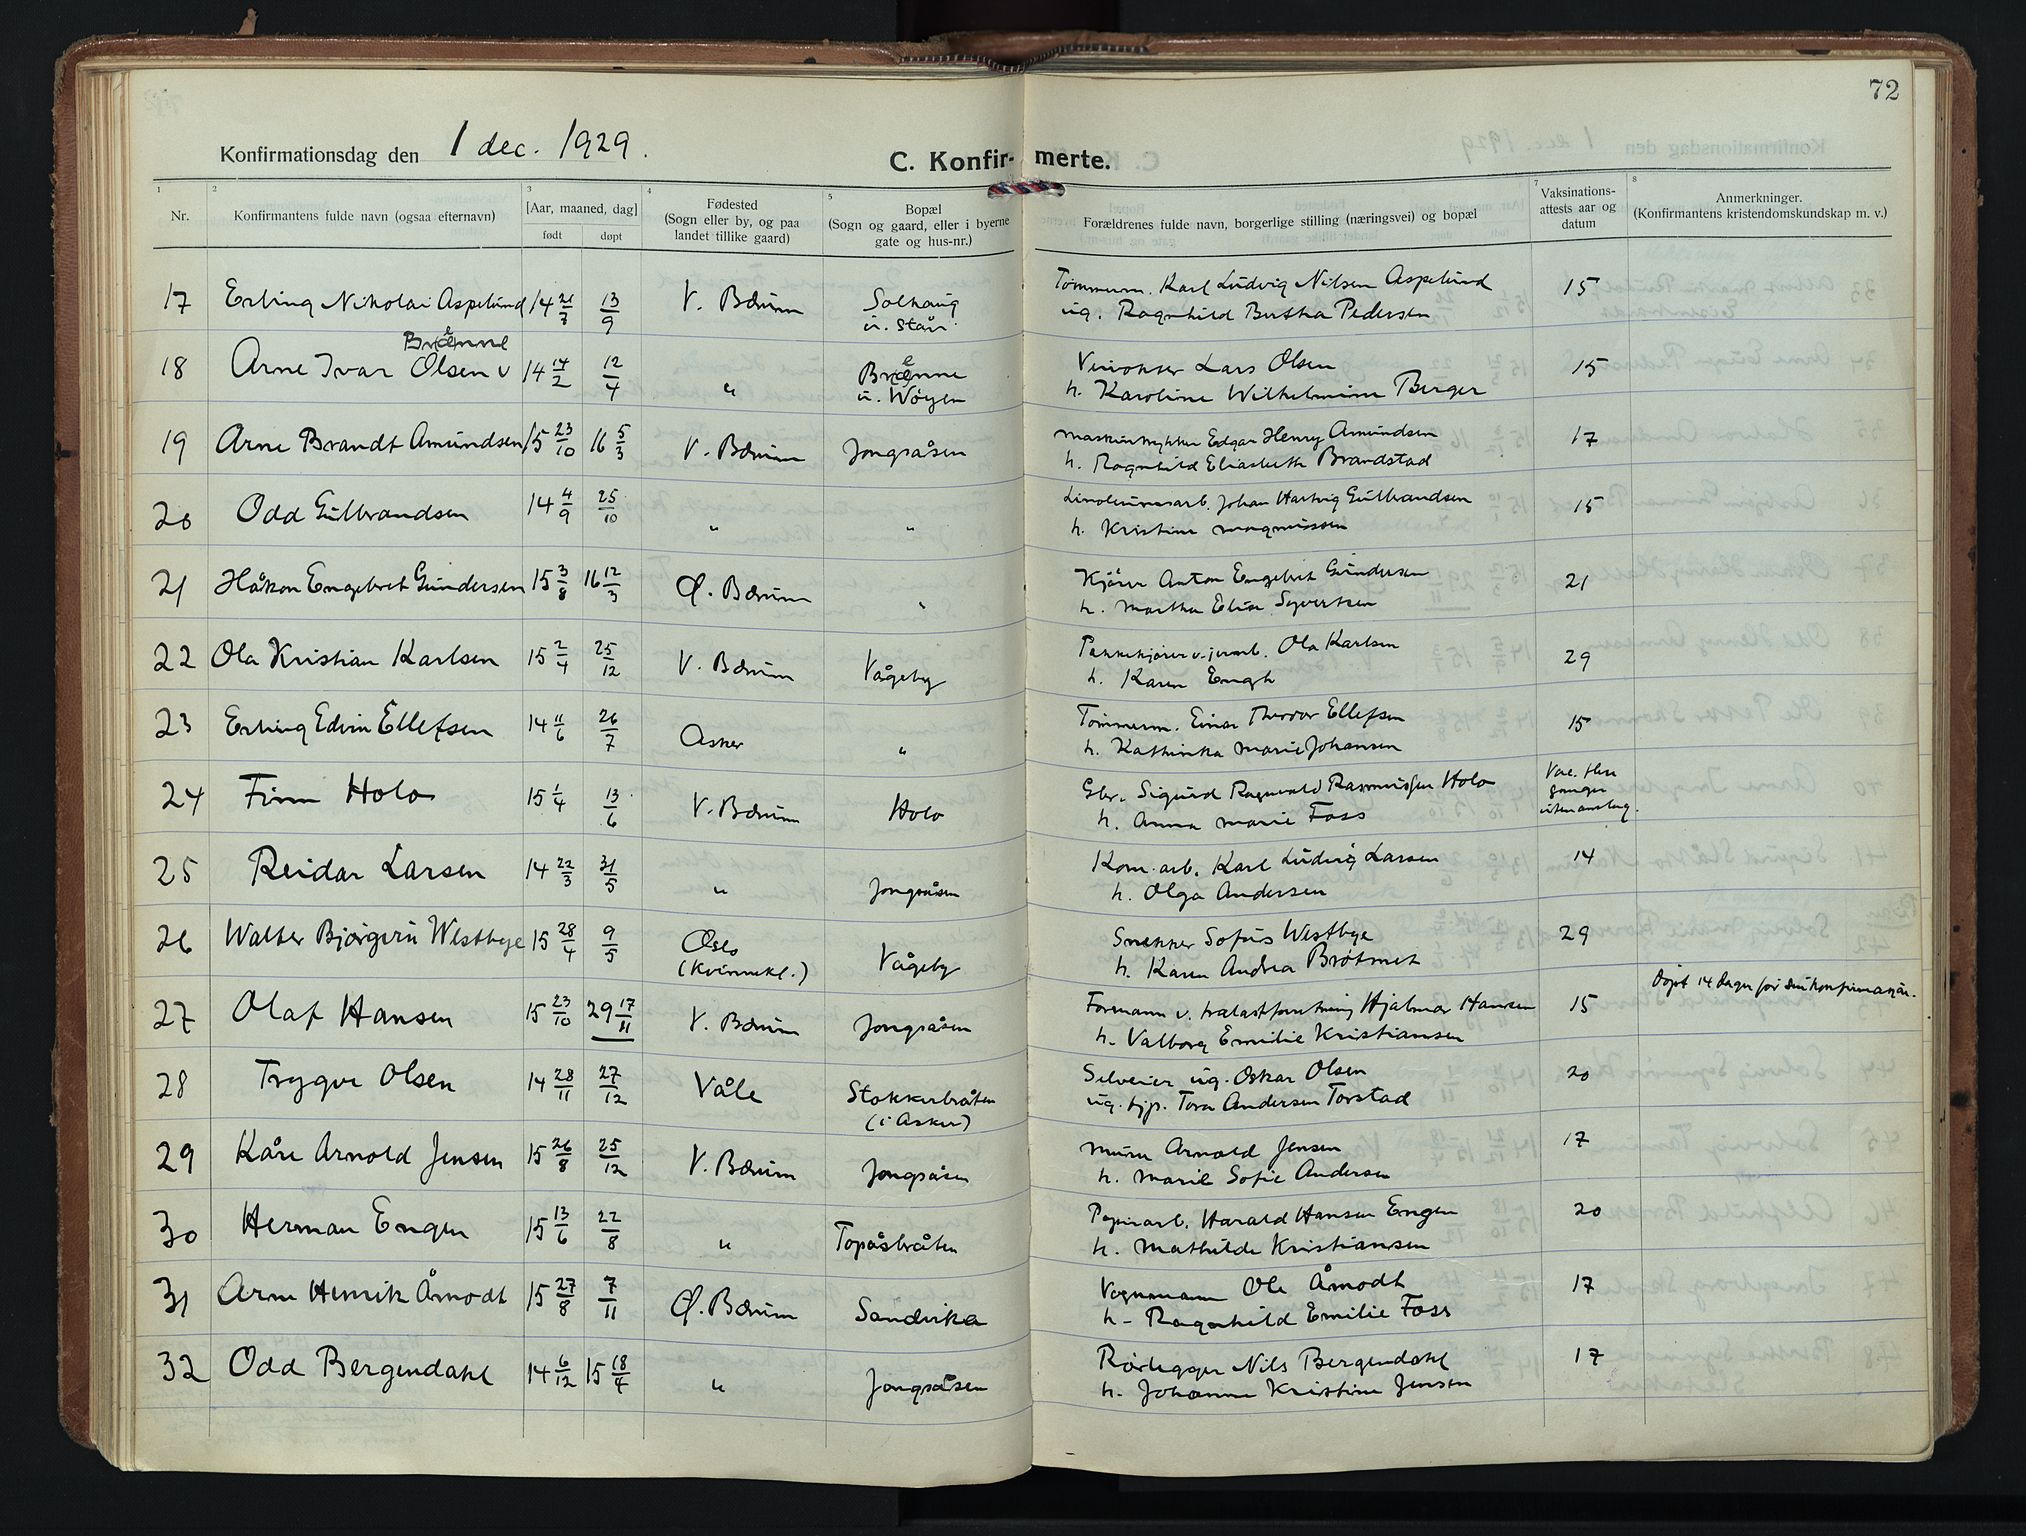 72
Konfirmationsdag den 1 dec. 1929.
C. Konfir- merte.
1 2 3 4 5 7 8
Nr.
Konfirmantens fulde navn (ogsaa efternavn)
[Aar, maaned, dag]
født døpt
Fødested
(Sogn eller by, og paa
landet tillike gaard)
Bopæl
(Sogn og gaard, eller i byerne
gate og hus-nr.)
Forældrenes fulde navn, borgerlige stilling (næringsvei) og bopæl
Vaksinations-
attests aar og
datum
Anmerkninger.
(Konfirmantens kristendomskundskap m. v.)
17 Erling Nikolai Aspelund 14 21/7 13/9 V. Bærum Solhaug Tømmerm. Karl Ludvig Nilsen Aspelund 15
u. Stån. ug. Ragnhild Bertha Pedersen
Brænne
18 Arne Ivar Olsen v 14 14/2 12/4 " Brænne Lars Olsen 15
u. Wøyen h. Karoline Wilhelmine Berger
19 Arne Brandt Amundsen 15 23/10 16 5/3 V. Bærum Jongsåsen Maskintrykker Edgar Henry Amundsen 17
h. Ragnhild Elisabeth Brandstad
20 Odd Gulbrandsen 14 4/9 25/10 " " Linoleumsarb. Johan Hartvig Gulbrandsen 15
h. Kristine Magnussen
21 Håkon Engebret Gundersen 15 3/8 16 12/3 Ø. Bærum " Kjører Anton Engebret Gundersen 21
h. Martha Elise Syvertsen
22 Ola Kristian Karlsen 15 2/4 25/12 V. Bærum Vågeby Pakkekjører v. jernb. Ola Karlsen 29
h. Karen Engh
23 Erling Edvin Ellefsen 14 11/6 26/7 Asker " Tømmerm. Einar Theodor Ellefsen 15
h. Kathinka Marie Johansen
24 Finn Holo 15 1/4 13/6 V. Bærum Holo Gbr. Sigurd Ragnvald Rasmussen Holo Vac. flere
ganger
uten anslag.
h. Anna Marie Foss
25 Reidar Larsen 14 22/3 31/5 " Jongsåsen Kom. arb. Karl Ludvig Larsen 14
h. Olga Andersen
26 Walter Bjørgvin Westbye 15 28/4 9/5 Oslo Vågeby Snekker Sofus Westbye 29
(Kvinnekl.) h. Karen Andrea Bråtmet
27 Olaf Hansen 15 23/10 29 17/11 V. Bærum Jongsåsen Formann v. Hjalmar Hansen 15 Døpt 14 dager før sin konfirmasjon.
h. Valborg Emilie Kristiansen
28 Trygve Olsen 14 28/11 27/12 Våle Stokkerbråten ug. Oskar Olsen 20
(i Asker) ug. tjp. Tora Andersen Torstad
29 Kåre Arnold Jensen 15 26/8 25/12 V. Bærum Jongsåsen Murer Arnold Jensen 17
h. Marie Sofie Andersen
30 Herman Engen 15 13/6 22/8 " Topåsbråten Papirarb. Harald Hansen Engen 20
h. Mathilde Kristiansen
31 Arne Henrik Åmodt 15 27/8 7/11 Ø. Bærum Sandvika Vognmann Ole Åmodt 17
h. Ragnhild Emilie Foss
32 Odd Bergendahl 14 6/12 15 18/4 " Jongsåsen Rørlegger Nils Bergendahl 17
h. Johanne Kristine Jensen